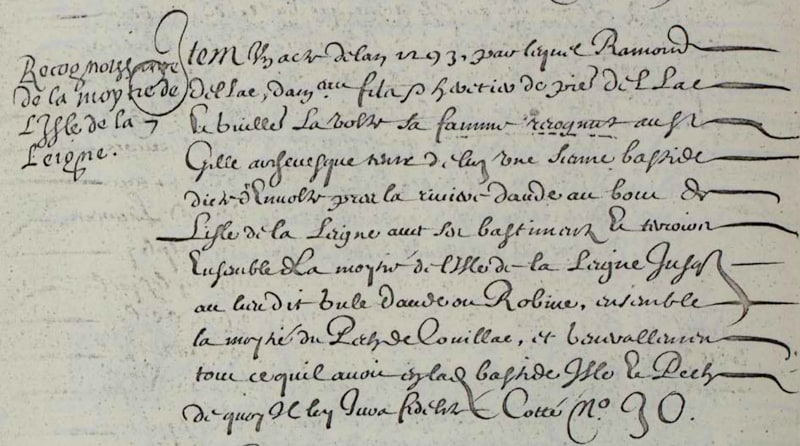 Recognoissance
de la moytie de
L'Isle de la
Leigne.
Item Un acte de lan 1293, par lequel Ramond
del Lac, dam[au] filz & heretier de pier del Lac
Et Vuille La volte sa famme recognut au Sr
Gille archevesque tenir de luy une sienne bastide
dicte d'Envolte prez la riviere daude au bout de
L'isle de la Leigne avec ses bastimentz Et terroir
Ensemble La moytié de l'Isle de la Leigne Jusq
au lieu dit daude ou Robine, ensemble
la moytié du Pech de Couillac, et
tout ce quil avoit bastide Isle Et Pech
de quoy Il luy Jura fidelité Cotté No 30.